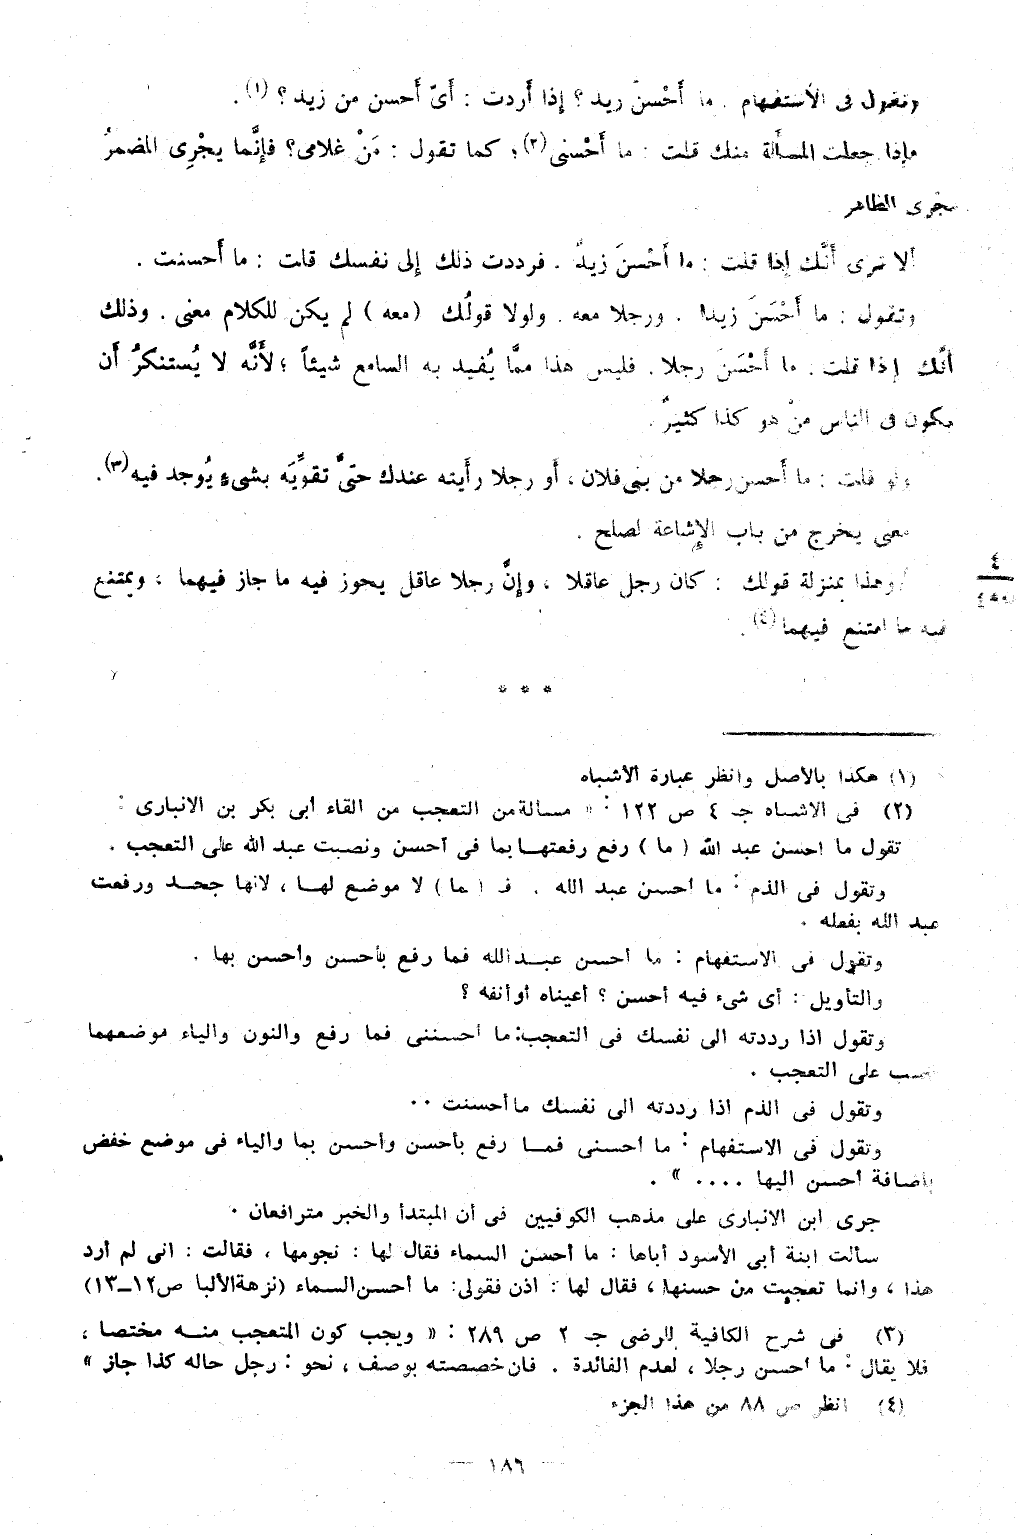 وتقول فى الاستفهام . ما أَحْسنُ زيد ؟ إذا أَردت : أَىّ أَحسن من زيد ؟ (١) .
فإذا جعلت المسأَلة منك قلت : ما أَحْسنى (٢) ؛ كما تقول : مَنْ غلامى؟ فإنَّما يجْرِى المضمرُ
مجْرى الظاهر
أَلا ترى أَنَّك إذا قلت : ما أَحْسنَ زيدٌ . فرددت ذلك إلى نفسك قلت : ما أَحسنت .
وتقول : ما أَحْسَنَ زيدا . ورجلا معه . ولولا قولُك (معه) لم يكن للكلام معنى . وذلك
أَنَّك إذا قلت . ما أَحْسَنَ رجلا . فليس هذا ممَّا يُفيد به السامع شيئاً ؛ لأَنَّه لا يُستنكرُ أَن
يكون فى الناس منْ هو كذا كثيرٌ .
ولو قلت : ما أَحسن رجلا من بنى فلان ، أَو رجلا رأَيته عندك حتىَّ تقوِّيَه بشىءٍ يُوجد فيه (٣) .
معنى يخرج من باب الإِشاعة لصلح .
/ وهذا بمنزلة قولك : كان رجل عاقلا ، وإنَّ رجلا عاقل يجوز فيه ما جاز فيهما ، ويمتنع
فيه ما امتنع فيهما (٤) .
٤
* * *
(١) هكذا بالأصل وانظر عبارة الأشباه
(٢) فى الاشباه جـ ٤ ص ١٢٢ : « مسالة من التعجب من القاء أبى بكر بن الانبارى :
تقول ما احسن عبد الله ( ما ) رفع رفعتهـا بما فى أحسن ونصبت عبد الله على التعجب .
وتقول فى الذم : ما احسن عبد الله . فـ ( ما ) لا موضع لهـا ، لانها جحـد ورفعت
عبد الله بفعله .
وتقول فى الاستفهام : ما احسن عبـدالله فما رفع بأحسن وأحسن بها .
والتأويل : أى شىء فيه أحسن ؟ أعيناه أو أنفه ؟
وتقول اذا رددته الى نفسك فى التعجب: ما احسننى فما رفع والنون والياء موضعهما
نصب على التعجب .
وتقول فى الذم اذا رددته الى نفسك ما أحسنت ..
وتقول فى الاستفهام : ما احسنى فمـا رفع بأحسن وأحسن بما والياء فى موضع خفض
باضـافة احسن اليها .... » .
جرى ابن الانبارى على مذهب الكوفيين فى أن المبتدأ والخبر مترافعان .
سألت ابنة أبى الأسود أباها : ما أحسن السماء فقال لها : نجومها ، فقالت : انى لم أرد
هذا ، وانما تعجبت من حسنها ، فقال لها : اذن فقولى: ما أحسن السماء (نزهة الألبا ص١٢ــ١٣)
(٣) فى شرح الكافية للرضى جـ ٢ ص ٢٨٩ : « ويجب كون المتعجب منـه مختصا ،
فلا يقال : ما احسن رجلا ، لعدم الفائدة . فان خصصته بوصف ، نحو : رجل حاله كذا جاز »
(٤) انظر ص ٨٨ من هذا الجزء
— ١٨٦ —